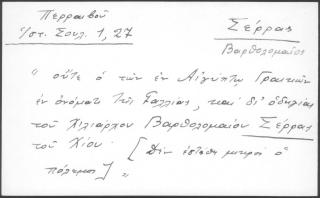 Περραιβού
Ἱστ. Σουλ. 1, 27
Σέρρας
Βαρθολομαῖος
"οὔτε ὁ τῶν ἐν Αἰγύπτῳ Γραικῶν
ἐν ὀνόματι τῆς Γαλλίας, καὶ δι' ὁδηγίας
τοῦ Χιλιάρχου Βαρθολομαίου Σέρρας
τοῦ Χίου. [δὲν ἐστάθη μικρὸς ὁ
πόλεμος]"